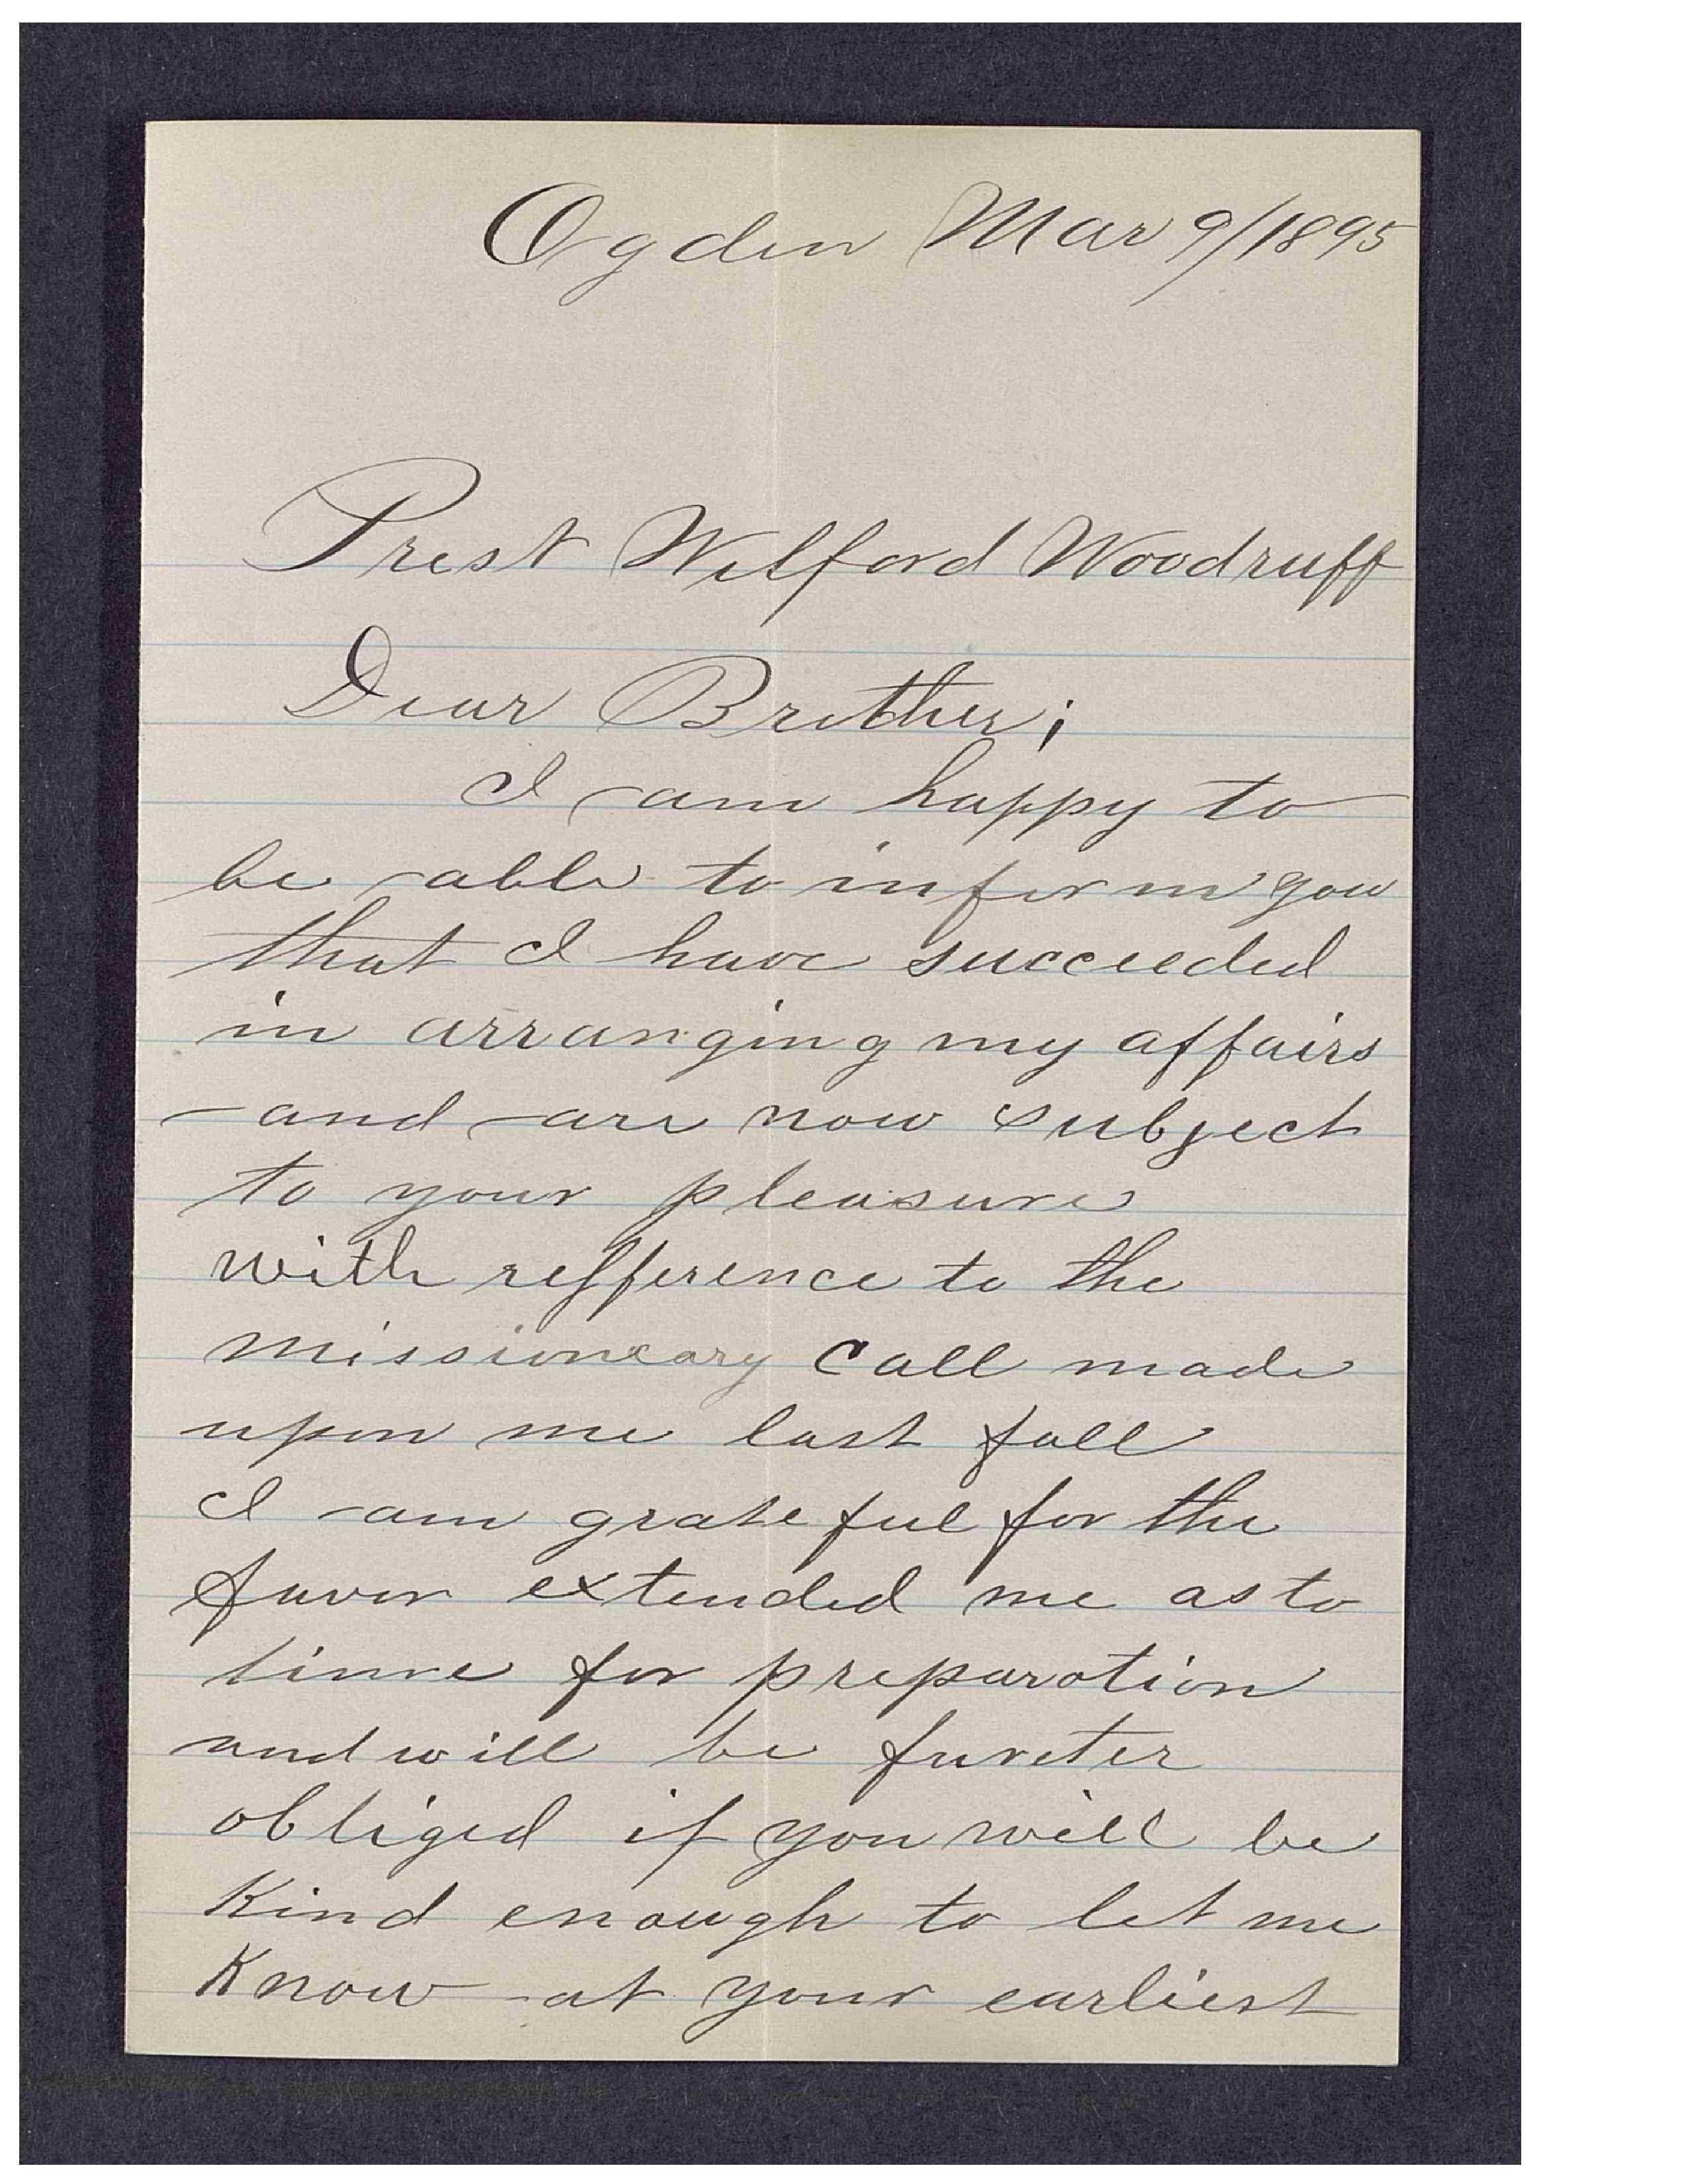 Ogden Mar 9/1895
Prest Wilford Woodruff
Dear Brother;
I am happy to
be able to inform you
that I have succeeded
in arranging my affairs
and are now subject
to your pleasure
with refference to the
missioneary call made
upon me last fall
I am grateful for the
favor extended me as to
time for preparation
and will be
obliged if you will be
kind enough to let me
know at your earliest